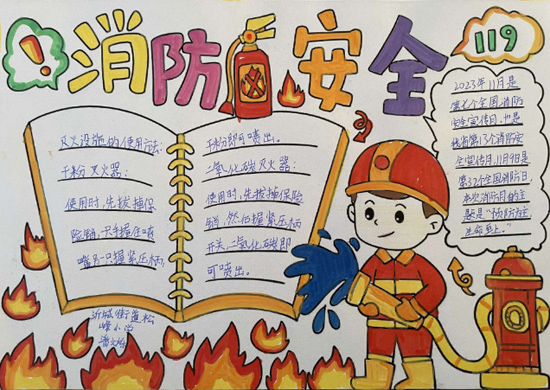 消防安全
119
灭火设施的使用方法:
干粉灭火器:
使用时,先拔掉保
险销,一只手握住喷
嘴另一只握紧压柄,
干粉即可喷出。
二氧化碳灭火器:
使用时,先拔掉保险
销,然后握紧压柄
开关,二氧化碳即
可喷出。
2023年11月是
全国消防
安全宣传月,也是
我省第13个消防安
全宣传月,11月9日是
第32个全国消防日,
本次消防月的主
题是"预防为主
生命至上。"
沂城街道松
峰小学